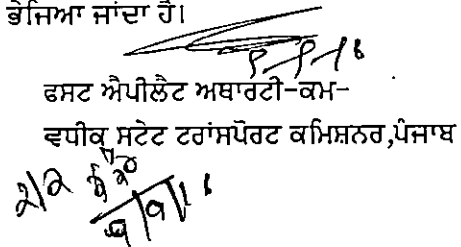 ਭੇਜਿਆ ਜਾਂਦਾ ਹੈ।
ਫਸਟ ਐਪੀਲੈਟ ਅਥਾਰਟੀ-ਕਮ-
ਵਧੀਕ ਸਟੇਟ ਟਰਾਂਸਪੋਰਟ ਕਮਿਸ਼ਨਰ,ਪੰਜਾਬ